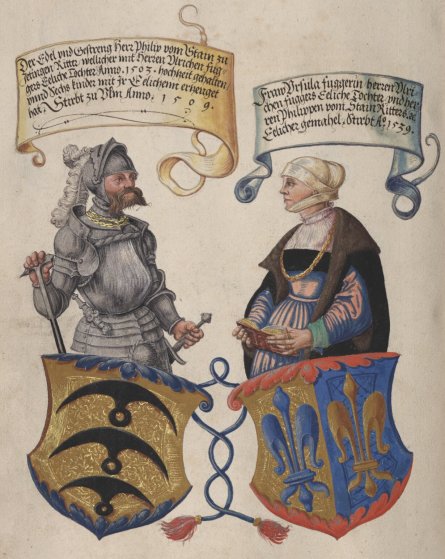 Der Edel vnd Gestreng Herr Philip vom Stain zu
Jetingen Ritter, wellicher mit Herren Vlrichen fug-
gers Eeliche Tochter Anno. 1503. hochzeit gehalten,
vnnd Sechs kinder mit Ir Eelichenn erzeuget
hat, Starbt zu Vlm Anno. 1509.
Fraw Vrsula fuggerin herren Vlri-
chen fuggers Eeliche Tochter, vnd her-
ren Philippen vom Stain Ritters, &c
Eelicher gemahel, Starbt Aº. 1539.